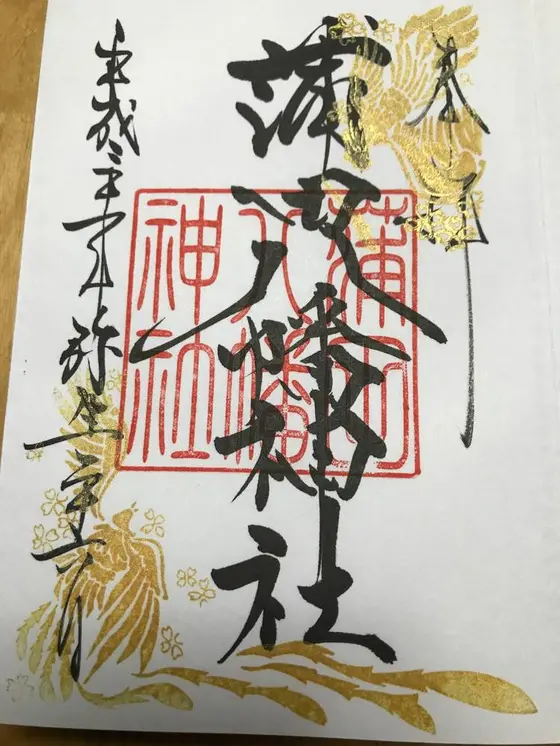 奉拝
蒲田八幡神社
平成三十年弥生二十六日
蒲田
八幡
神社